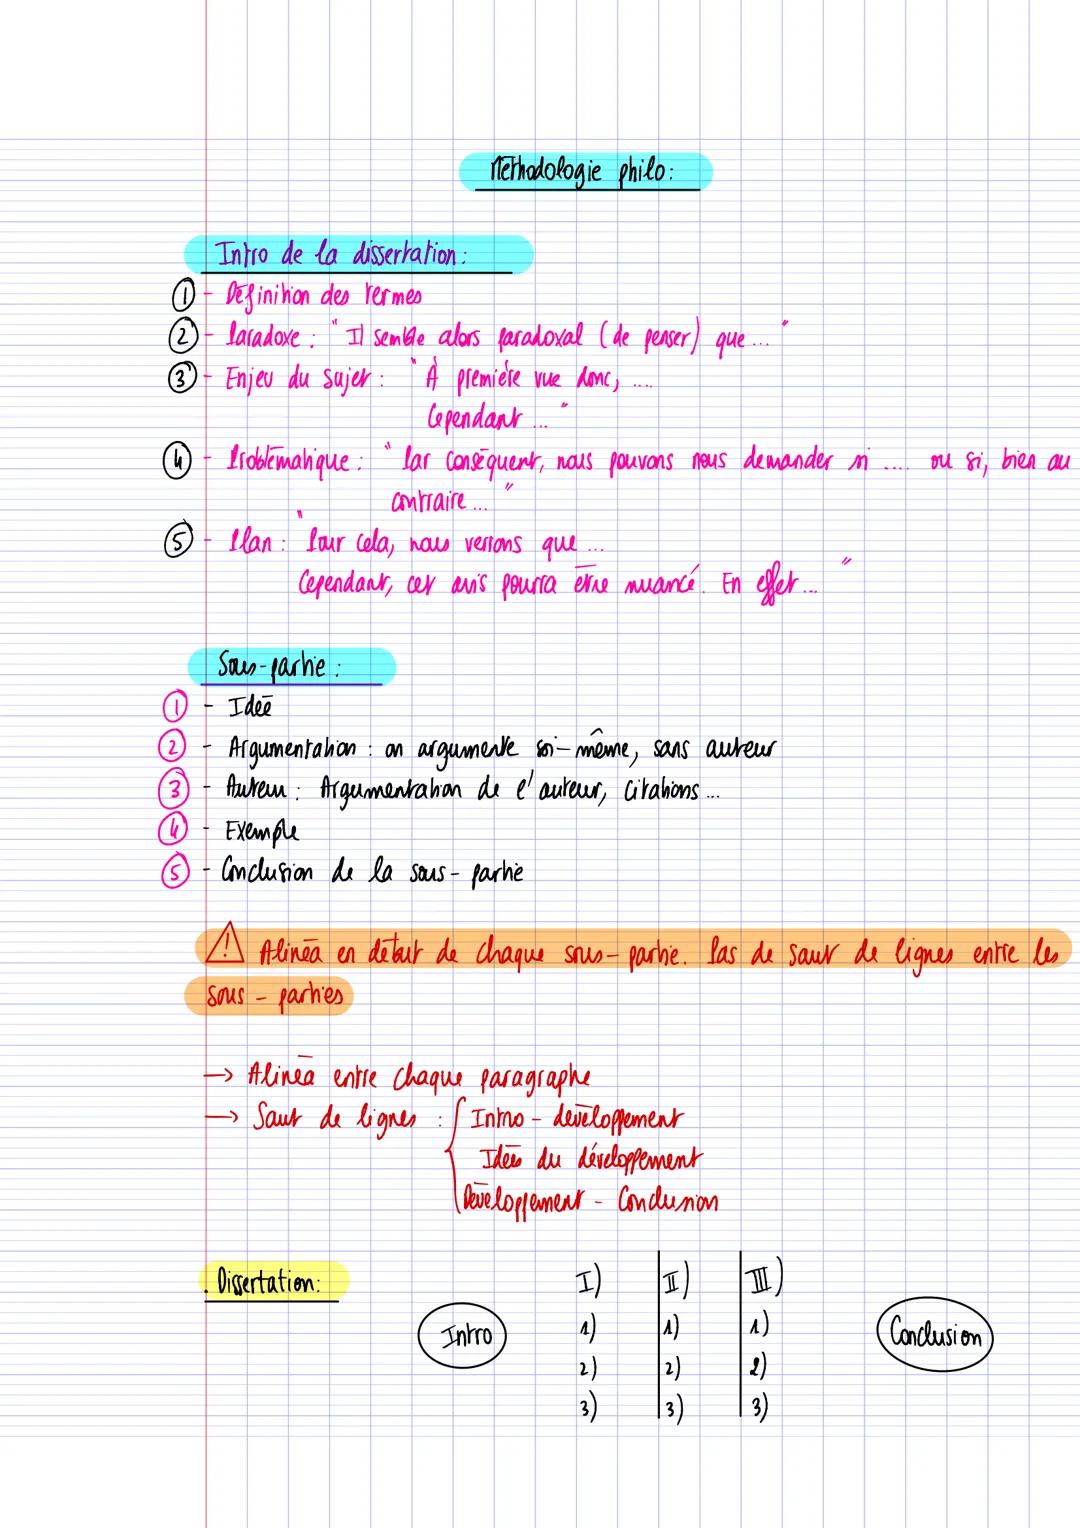 Méthodologie philo:
Intro de la dissertation:
① - Définition des termes
② - Paradoxe : " Il semble alors paradoxal (de penser) que ... "
③ - Enjeu du sujet : " À première vue donc, ....
Cependant ... "
④ - Problématique : " Par conséquent, nous pouvons nous demander si .... ou si, bien au
contraire ... "
⑤ - Plan : " Pour cela, nous verrons que ...
Cependant, cet avis pourra être nuancé. En effet ... "
Sous-partie :
① - Idée
② - Argumentation : on argumente soi-même, sans auteur
③ - Auteur : Argumentation de l'auteur, Citations ...
④ - Exemple
⑤ - Conclusion de la sous-partie
⚠ Alinéa en début de chaque sous-partie. Pas de saut de lignes entre les
sous-parties
→ Alinéa entre chaque paragraphe
→ Saut de lignes : { Intro - développement
Idées du développement
Développement - Conclusion
. Dissertation:
I) II) III)
Intro 1) 1) 1) Conclusion
2) 2) 2)
3) 3) 3)